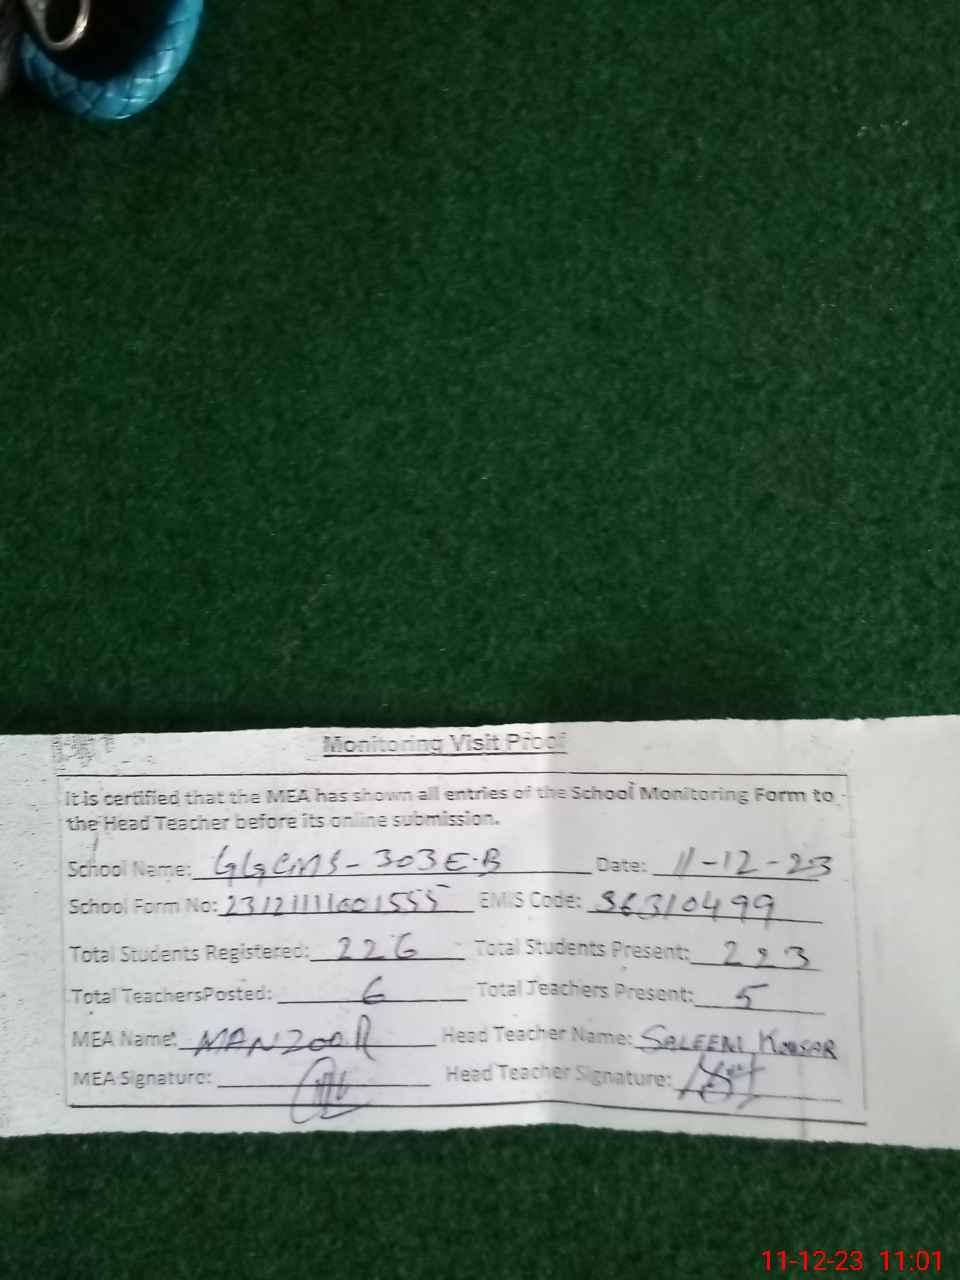 Monitoring Visit Proof
It is certified that the MEA has shown all entries of the School Monitoring Form to
the Head Teacher before its online submission.
School Name: GGCMS-303E.B Date: 11-12-23
School Form No: EMIS Code: 36310499
Total Students Registered: 226 Total Students Present: 223
Total TeachersPosted: 6 Total Teachers Present: 5
MEA Name: MANZOOR Head Teacher Name: SALEEM KOUSAR
MEA Signature: Head Teacher Signature:
11-12-23 11:01